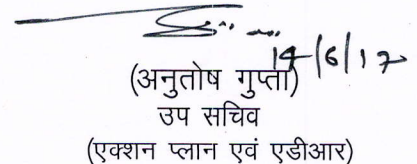 14/6/17
(अनुतोष गुप्ता)
उप सचिव
(एक्शन प्लान एवं एडीआर)